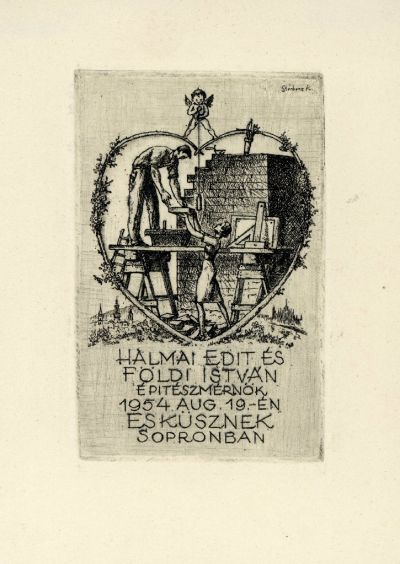 HALMAI EDIT ÉS
FÖLDI ISTVÁN
ÉPITÉSZMÉRNÖK
1954 AUG. 19.-ÉN
ESKÜSZNEK
SOPRONBAN